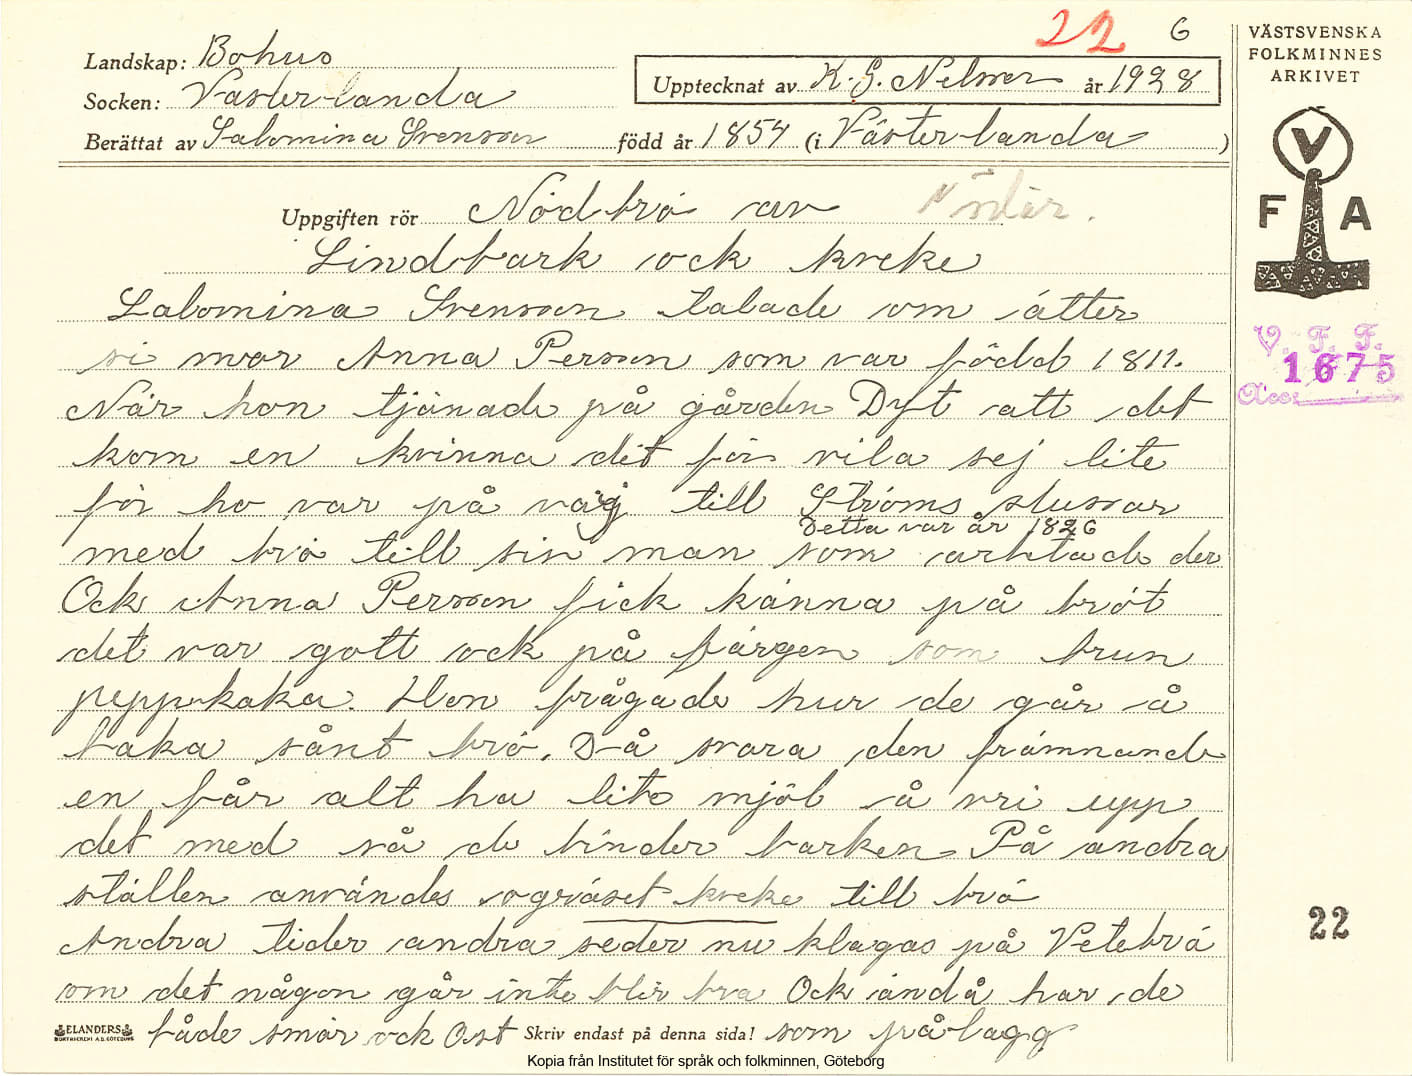 22 6
Landskap: Bohus
Socken: Västerlanda
Upptecknat av K. G. Nelson år 1928
Berättat av Salomina Svenson född år 1854 (i Västerlanda)
VÄSTSVENSKA
FOLKMINNES
ARKIVET
V
F A
Uppgiften rör Nödbrö av
Lindbark ock kveke
Salomina Svenson talade om ätter
si mor Anna Person som var född 1811.
När hon tjänade på gården Dyt att det
kom en kvinna dit för vila sej lite
för ho var på väj till Ströms slussar
Detta var år 1826
med brö till sin man som arbtade der
Ock Anna Person fick känna på bröt
det var gott ock på färgen som brun
peppkaka. Hon frågade hur de går å
baka sånt brö. Då svara den främnande
en får alt ha lite mjöl å vri upp
det med så de binder barken På andra
ställen användes ogräset kveke till brö
Andra tider andra seder nu klagas på Vetebrö
som det någon går inte blir bra Ock ändå har de
både smör ock Ost Skriv endast på denna sida! som pålägg
V. F. F.
1675
Acc:
22
ELANDERS
BOKTRYCKERI A.B. GÖTEBORG
Kopia från Institutet för språk och folkminnen, Göteborg